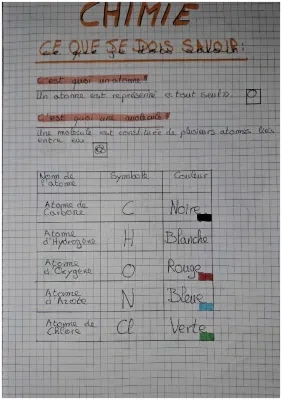 CHIMIE
CE QUE JE DOIS SAVOIR:
C'est quoi un atome?
Un atome est représenté « tout seul ».
C'est quoi une molécule?
Une molécule est constituée de plusieurs atomes liés
entre eux
Nom de l'atome Symbole Couleur
Atome de Carbone C Noire
Atome d'Hydrogène H Blanche
Atome d'Oxygène O Rouge
Atome d'Azote N Bleue
Atome de Chlore Cl Verte